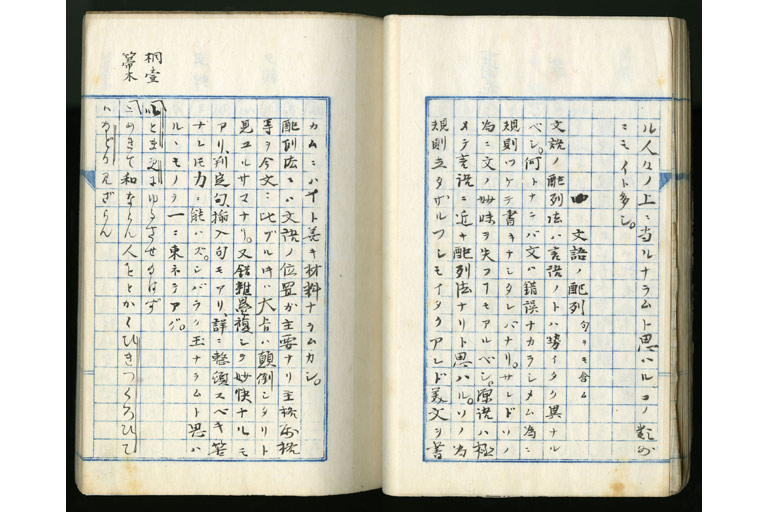 ル人々ノ上ニ当ルナラムト思ハルコノ類如
ニモイト多シ。
四 文語ノ配列 句ヲモ含ム
文説ノ配列法ハ言語ノトハ勢イタク異ナル
ベシ。何トナレバ文ハ錯誤ナカラシメム為ニ
規則ツケテ書キナシタレバナリ。サレドソノ
為ニ文ノ妙味ヲ失フコモアルベシ。源説ハ極
メテ言語ニ近キ配列法ナリト思ハル。ソノ為
規則立タザルフシモイタクアレド美文ヲ書
カムニハイト美キ材料ナラムカシ。
配列法ニハ文語ノ位置ガ主要ナリ主格客格
等ヲ今文ニ比ブル時ハ大方ハ顛倒シタリト
見ユルサマナリ。又錯雑畳複シテ妙快ナルモ
アリ、判定句、挿入句モアリ、詳ニ整頓スベキ筈
ナレドモ力ニ能ハズ。シバラク玉ナラムト思ハ
ルヽモノヲ一ニ束ネテアグ。
桐壺
いとま更にゆるさせ給はず
帚木
とめきて和ならん人をとかくひきつくろひて
はなどか見ざらん